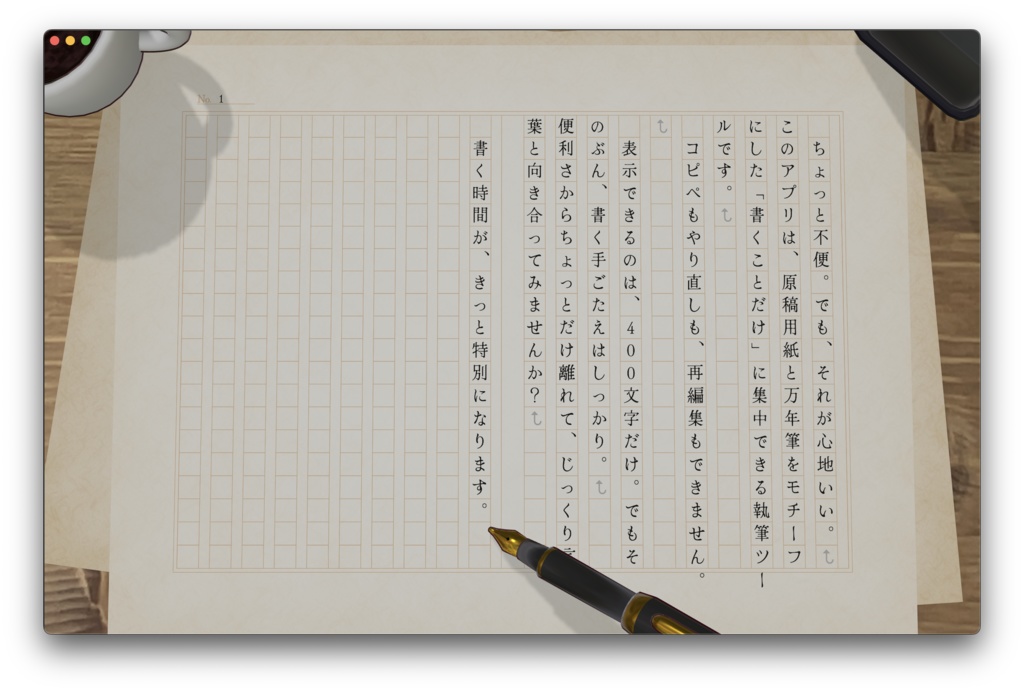 No. 1
ちょっと不便。でも、それが心地いい。
このアプリは、原稿用紙と万年筆をモチーフ
にした「書くことだけ」に集中できる執筆ツー
ルです。
コピペもやり直しも、再編集もできません。
表示できるのは、400文字だけ。でもそ
のぶん、書く手ごたえはしっかり。
便利さからちょっとだけ離れて、じっくり言
葉と向き合ってみませんか？
書く時間が、きっと特別になります。